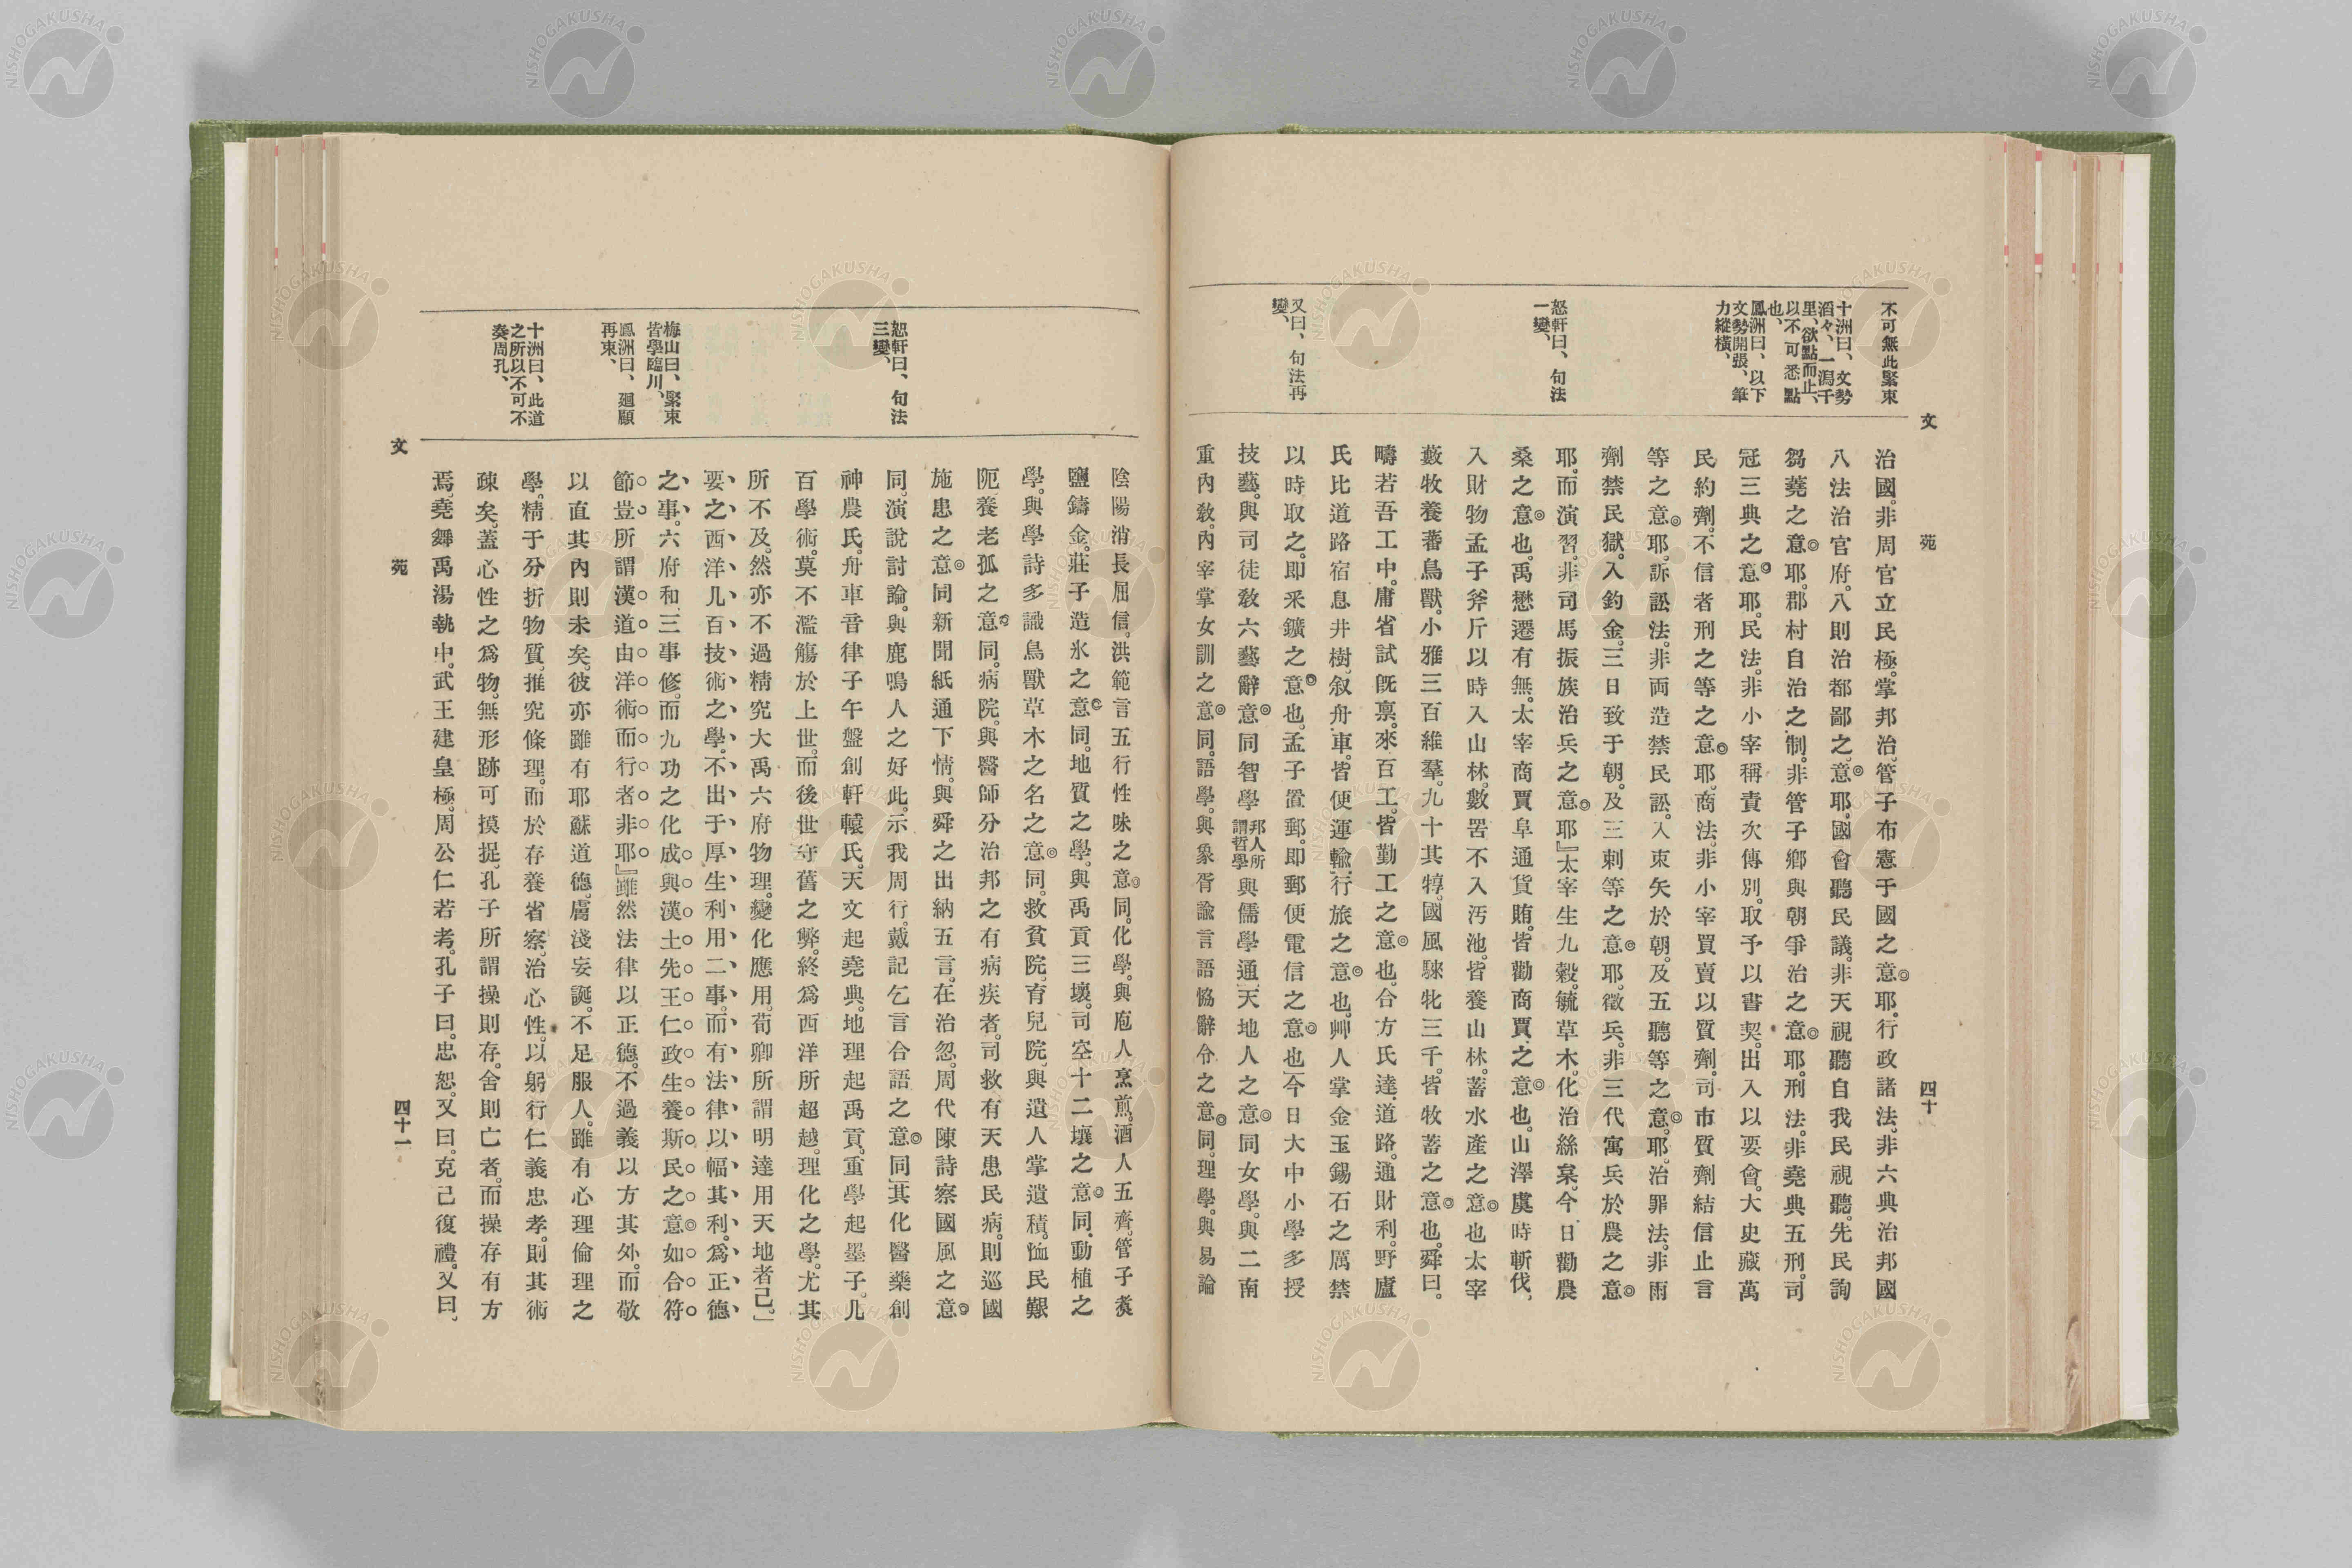 文苑
四十
不可無此緊束
十洲曰、文勢
滔々、一瀉千
里、欲點而止、
以不可悉點
也、
鳳洲曰、以下
文勢開張、筆
力縱橫、
怒軒曰、句法
一變、
又曰、句法再
變、
治國。非周官立民極。掌邦治。管子布憲于國之意耶。行政諸法。非六典治邦國
八法治官府。八則治都鄙之意耶。國會聽民議。非天視聽自我民視聽。先民詢
芻蕘之意耶。郡村自治之制。非管子鄉與朝爭治之意耶。刑法。非堯典五刑。司
冠三典之意耶。民法。非小宰稱責次傅別。取予以書契。出入以要會。大史藏萬
民約劑。不信者刑之等之意耶。商法。非小宰買賣以質劑。司市質劑結信止言
等之意耶。訴訟法。非両造禁民訟。入束矢於朝。及五聽等之意。耶。治罪法。非雨
劑禁民獄。入鈞金。三日致于朝。及三刺等之意耶。徵兵。非三代寓兵於農之意
耶。而演習。非司馬振族治兵之意耶』太宰生九穀。毓草木。化治絲枲。今日勸農
桑之意也。禹懋遷有無。太宰商賈阜通貨賄。皆勸商賈之意也。山澤虞時斬伐。
入財物孟子斧斤以時入山林。數罟不入汚池。皆養山林。蓄水產之意也太宰
藪牧養蕃鳥獸。小雅三百維羣。九十其犉。國風騋牝三千。皆牧蓄之意也。舜曰。
疇若吾工中。庸省試旣稟。來百工。皆勤工之意也。合方氏達道路。通財利。野廬
氏比道路宿息井樹。叙舟車。皆便運輸行旅之意也。艸人掌金玉錫石之厲禁
以時取之。即釆鑛之意也。孟子置郵。即郵便電信之意也」今日大中小學多授
技藝。與司徒敎六藝辭意同智學邦人所謂哲學與儒學通」天地人之意同女學。與二南
重內敎。內宰掌女訓之意同。語學。與象胥諭言語恊辭令之意同。理學。與易論
恕軒曰、句法
三變、
梅山曰、緊束
皆學臨川、
鳳洲曰、廻顧
再束、
十洲曰、此道
之所以不可不
奏周孔、
陰陽消長屈信。洪範言五行性味之意同。化學。與庖人烹煎。酒人五齊。管子煮
鹽鑄金。莊子造氷之意同。地質之學。與禹貢三壤。司空十二壤之意同。動植之
學。與學詩多識鳥獸草木之名之意同。救貧院。育兒院。與遺人掌遺積。恤民艱
阨養老孤之意同。病院。與醫師分治邦之有病疾者。司救有天患民病。則巡國
施患之意同新聞紙通下情。與舜之出納五言。在治忽。周代陳詩察國風之意
同。演說討論。與鹿鳴人之好此。示我周行。戴記乞言合語之意同」其化醫藥創
神農氏。舟車音律子午盤創軒轅氏。天文起堯典。地理起禹貢。重學起墨子。凡
百學術。莫不濫觴於上世。而後世守舊之弊。終爲西洋所超越。理化之學。尤其
所不及。然亦不過精究大禹六府物理。變化應用。荀卿所謂明達用天地者已。」
要之西洋凡百技術之學。不出于厚生利用二事。而有法律以幅其利。爲正德
之事。六府和三事修。而九功之化成與漢土先王仁政生養斯民之意如合符
節。豈所謂漢道由洋術而行者非耶』雖然法律以正德。不過義以方其外。而敬
以直其內則未矣。彼亦雖有耶蘇道德。膚淺妄誕。不足服人。雖有心理倫理之
學。精于分折物質。推究條理。而於存養省察。治心性。以躬行仁義忠孝。則其術
疎矣。蓋心性之爲物。無形跡可摸捉。孔子所謂操則存。舍則亡者。而操存有方
焉。堯舜禹湯執中。武王建皇極。周公仁若考。孔子曰。忠恕。又曰。克己復禮。又曰。
文苑
四十一